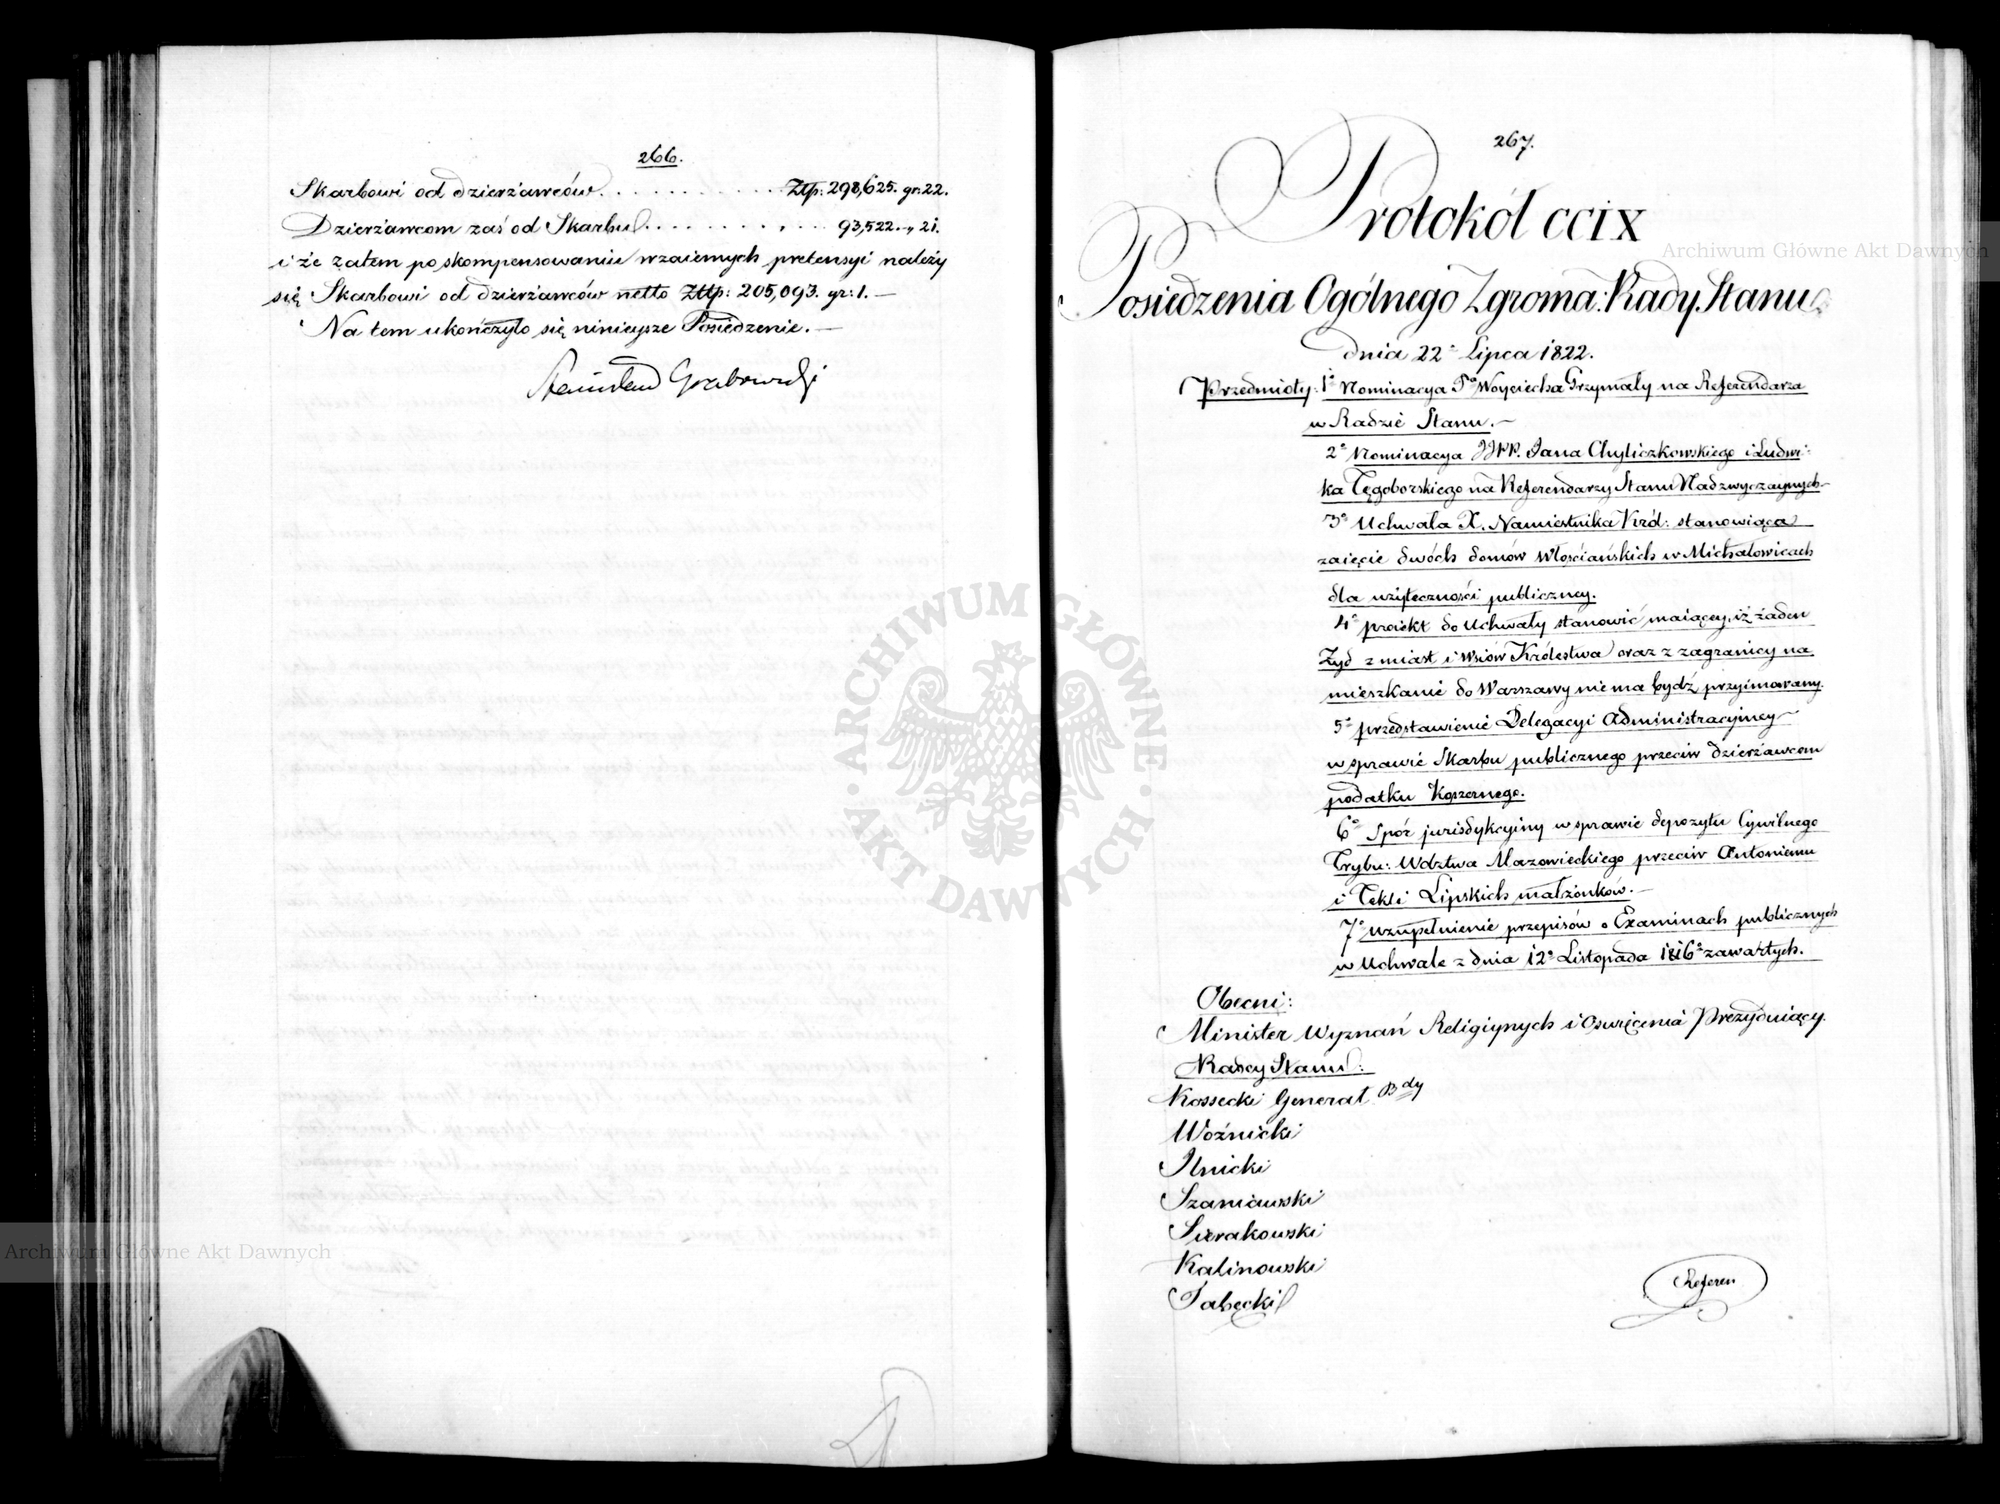 266.
Skarbowi od dzierżawców. . . . . . . . . . . Złp: 298,625. gr: 22.
Dzierżawcom zaś od Skarbu . . . . . . . . . . 93,522. „ 21.
i że zatem po skompensowaniu wzaiemnych pretensyi należy
się Skarbowi od dzierżawców netto Złłp: 205,093. gr: 1. —
Na tem ukończyło się ninieysze Posiedzenie. —
Stanisław Grabowski
267.
Protokół CCIX
Posiedzenia Ogólnego Zgroma: Rady Stanu
dnia 22º Lipca 1822.
Przedmioty: 1º Nominacya Pª Woyciecha Grzymały na Referendarza
w Radzie Stanu. —
2º Nominacya JJPP. Jana Chyliczkowskiego i Ludwi-
ka Tęgoborskiego na Referendarzy Stanu Nadzwyczaynych —
3º Uchwała X. Namiestnika Król: stanowiąca
zaięcie dwóch domów Włościańskich w Michałowicach
dla użyteczności publiczney.
4º proiekt do Uchwały stanowić maiącey, iż żaden
Żyd z miast i Wsiów Królestwa oraz z zagranicy na
mieszkanie do Warszawy nie ma bydź przyimowany.
5º przedstawienie Delegacyi Administracyiney —
w sprawie Skarbu publicznego przeciw dzierżawcom
podatku Koszernego.
6º Spór jurisdykcyiny w sprawie depozytu Cywilnego
Trybu: Wdztwa Mazowieckiego przeciw Antoniemu
i Tekli Lipskich małżonków. —
7º uzupełnienie przepisów o Examinach publicznych
w Uchwale z dnia 12º Listopada 1816º zawartych.
Obecni:
Minister Wyznań Religiynych i Oświecenia Prezyduiący.
Radcy Stanu:
Kossecki Generał Bdy
Woźnicki
Ilnicki
Szaniawski
Sierakowski
Kalinowski
Tabęcki
Referen
ARCHIWUM GŁÓWNE
AKT DAWNYCH
Archiwum Główne Akt Dawnych
Archiwum Główne Akt Dawnych